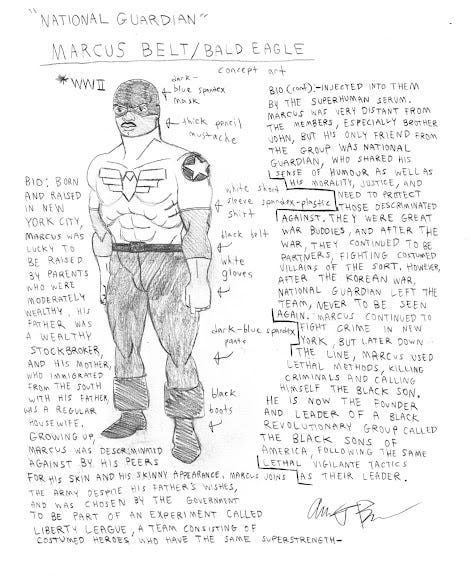 "NATIONAL GUARDIAN"
MARCUS BELT/BALD EAGLE
concept art
*WWII
dark-
blue spandex
mask
thick pencil
mustache
white short
sleeve spandex-plastic
shirt
black belt
white
gloves
dark-blue spandex
pants
black
boots
BIO: BORN
AND RAISED
IN NEW
YORK CITY,
MARCUS WAS
LUCKY TO
BE RAISED
BY PARENTS
WHO WERE
MODERATELY
WEALTHY. HIS
FATHER WAS
A WEALTHY
STOCKBROKER,
AND HIS MOTHER,
WHO IMMIGRATED
FROM THE SOUTH
WITH HIS FATHER,
WAS A REGULAR
HOUSEWIFE.
GROWING UP,
MARCUS WAS DESCRIMINATED
AGAINST BY HIS PEERS
FOR HIS SKIN AND HIS SKINNY APPEARANCE. MARCUS JOINS
THE ARMY DESPITE HIS FATHER'S WISHES,
AND WAS CHOSEN BY THE GOVERNMENT
TO BE PART OF AN EXPERIMENT CALLED
LIBERTY LEAGUE, A TEAM CONSISTING OF
COSTUMED HEROES WHO HAVE THE SAME SUPERSTRENGTH-
BIO (cont). -INJECTED INTO THEM
BY THE SUPERHUMAN SERUM.
MARCUS WAS VERY DISTANT FROM
THE MEMBERS, ESPECIALLY BROTHER
JOHN, BUT HIS ONLY FRIEND FROM
THE GROUP WAS NATIONAL
GUARDIAN, WHO SHARED HIS
SENSE OF HUMOUR AS WELL AS
HIS MORALITY, JUSTICE, AND
NEED TO PROTECT
THOSE DESCRIMINATED
AGAINST. THEY WERE GREAT
WAR BUDDIES, AND AFTER THE
WAR, THEY CONTINUED TO BE
PARTNERS, FIGHTING COSTUMED
VILLAINS OF THE SORT. HOWEVER,
AFTER THE KOREAN WAR,
NATIONAL GUARDIAN LEFT THE
TEAM, NEVER TO BE SEEN
AGAIN. MARCUS CONTINUED TO
FIGHT CRIME IN NEW
YORK, BUT LATER DOWN
THE LINE, MARCUS USED
LETHAL METHODS, KILLING
CRIMINALS AND CALLING
HIMSELF THE BLACK SON.
HE IS NOW THE FOUNDER
AND LEADER OF A BLACK
REVOLUTIONARY GROUP CALLED
THE BLACK SONS OF
AMERICA, FOLLOWING THE SAME
LETHAL VIGILANTE TACTICS
AS THEIR LEADER.